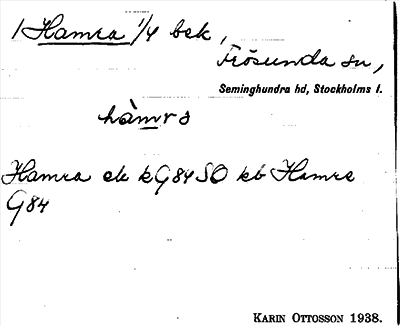 1 Hamra 1/4 bek,
Frösunda sn,
Seminghundra hd, Stockholms l.
hàmra
Hamra ek kG84SO kb Hamre
G84
KARIN OTTOSSON 1938.